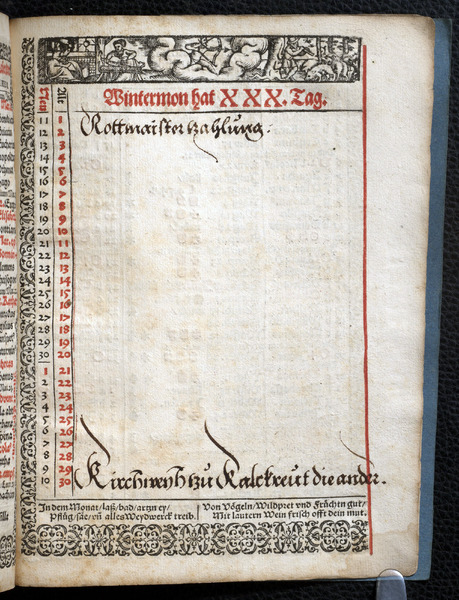 Wintermon hat XXX. Tag.
New Alte
11 1
12 2 Rottmaister tzahlung.
13 3
14 4
15 5
16 6
17 7
18 8
19 9
20 10
21 11
22 12
23 13
24 14
25 15
26 16
27 17
28 18
29 19
30 20
1 21
2 22
3 23
4 24
5 25
6 26
7 27
8 28
9 29 Kirchweyh tzu Kalckreut die ander.
10 30
In dem Monat/laß/bad/artzney/
Pflüg/säe/uñ alles Weydwerck treib.
Von Vögeln/Wildpret vnd Früchtn gut/
Mit lautern Wein frisch offt dein mut.